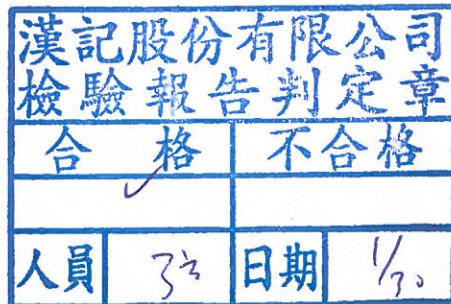 漢記股份有限公司
檢驗報告判定章
合格 不合格
✓
人員 日期 1/30